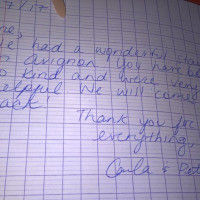 7/17
me,
e had a wonderful sta
o avignon You have be
o kind and were ver
elpful We will come
ack!
Thank you for
everything,
Carla & Pet